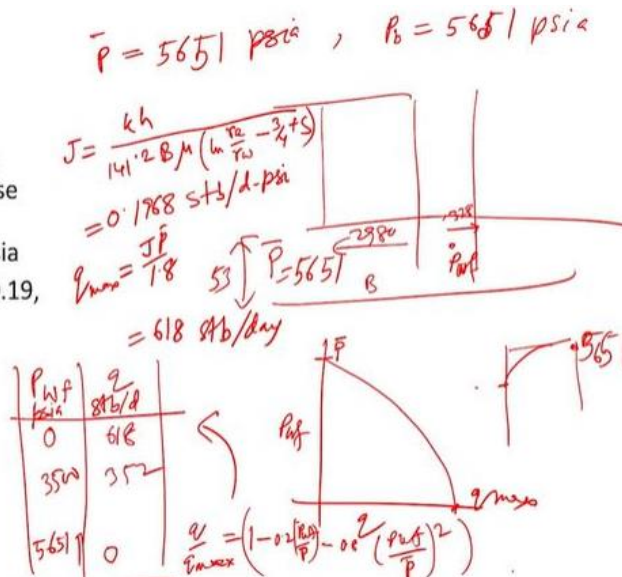 p̄ = 5651 psia , Pb = 5651 psia
J = kh / 141.2 B μ (ln re/rw - 3/4 + S)
se
= 0.1968 stb/d-psi
ia
.19,
qmax = J p̄ / 1.8
= 618 stb/day
53
P̄ = 5651
2980
B
.328
Pwf
Pwf psia | q stb/d
0 | 618
3500 | 352
5651 | 0
P̄
Pwf
qmax
q
565
q/qmax = (1 - 0.2 (Pwf/P̄) - 0.8 (Pwf/P̄)²)